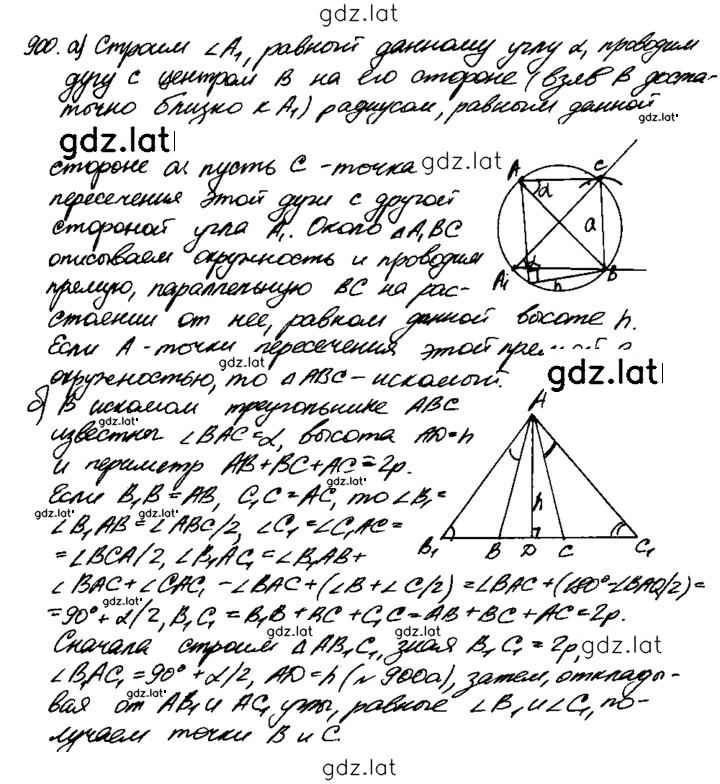 gdz.lat
900. а) Строим ∠A₁, равный данному углу α, проводим
дугу с центром B на его стороне (взяв B доста-
точно близко к A₁) радиусом, равным данной
gdz.lat
gdz.lat
стороне a. пусть C - точка
gdz.lat
пересечения этой дуги с другой
стороной угла A₁. Около △A₁BC
описываем окружность и проводим
прямую, параллельную BC на рас-
стоянии от нее, равном данной высоте h.
Если A - точки пересечения этой
gdz.lat
окружностью, то △ABC - искомый.
gdz.lat
A
C
α
a
A₁
h
B
б) В искомом треугольнике ABC
gdz.lat
известны ∠BAC=α, высота AD=h
и периметр AB+BC+AC=2p.
gdz.lat
Если B₁B=AB, C₁C=AC, то ∠B₁=
gdz.lat
=∠B₁AB=∠ABC/2, ∠C₁=∠C₁AC=
=∠BCA/2, ∠B₁AC₁=∠B₁AB+
A
h
B₁ B D C C₁
∠BAC+∠CAC₁ -∠BAC+(∠B+∠C/2)=∠BAC+(180°-∠BAC)/2)=
gdz.lat
=90°+α/2, B₁C₁=B₁B+BC+C₁C=AB+BC+AC=2p.
gdz.lat
gdz.lat
Сначала строим △AB₁C₁, зная B₁C₁=2p,
gdz.lat
∠B₁AC₁=90°+α/2, AD=h (№900а), затем, откладыв-
gdz.lat
вая от AB₁ и AC₁ углы, равные ∠B₁ и ∠C₁, по-
лучаем точки B и C.
gdz.lat